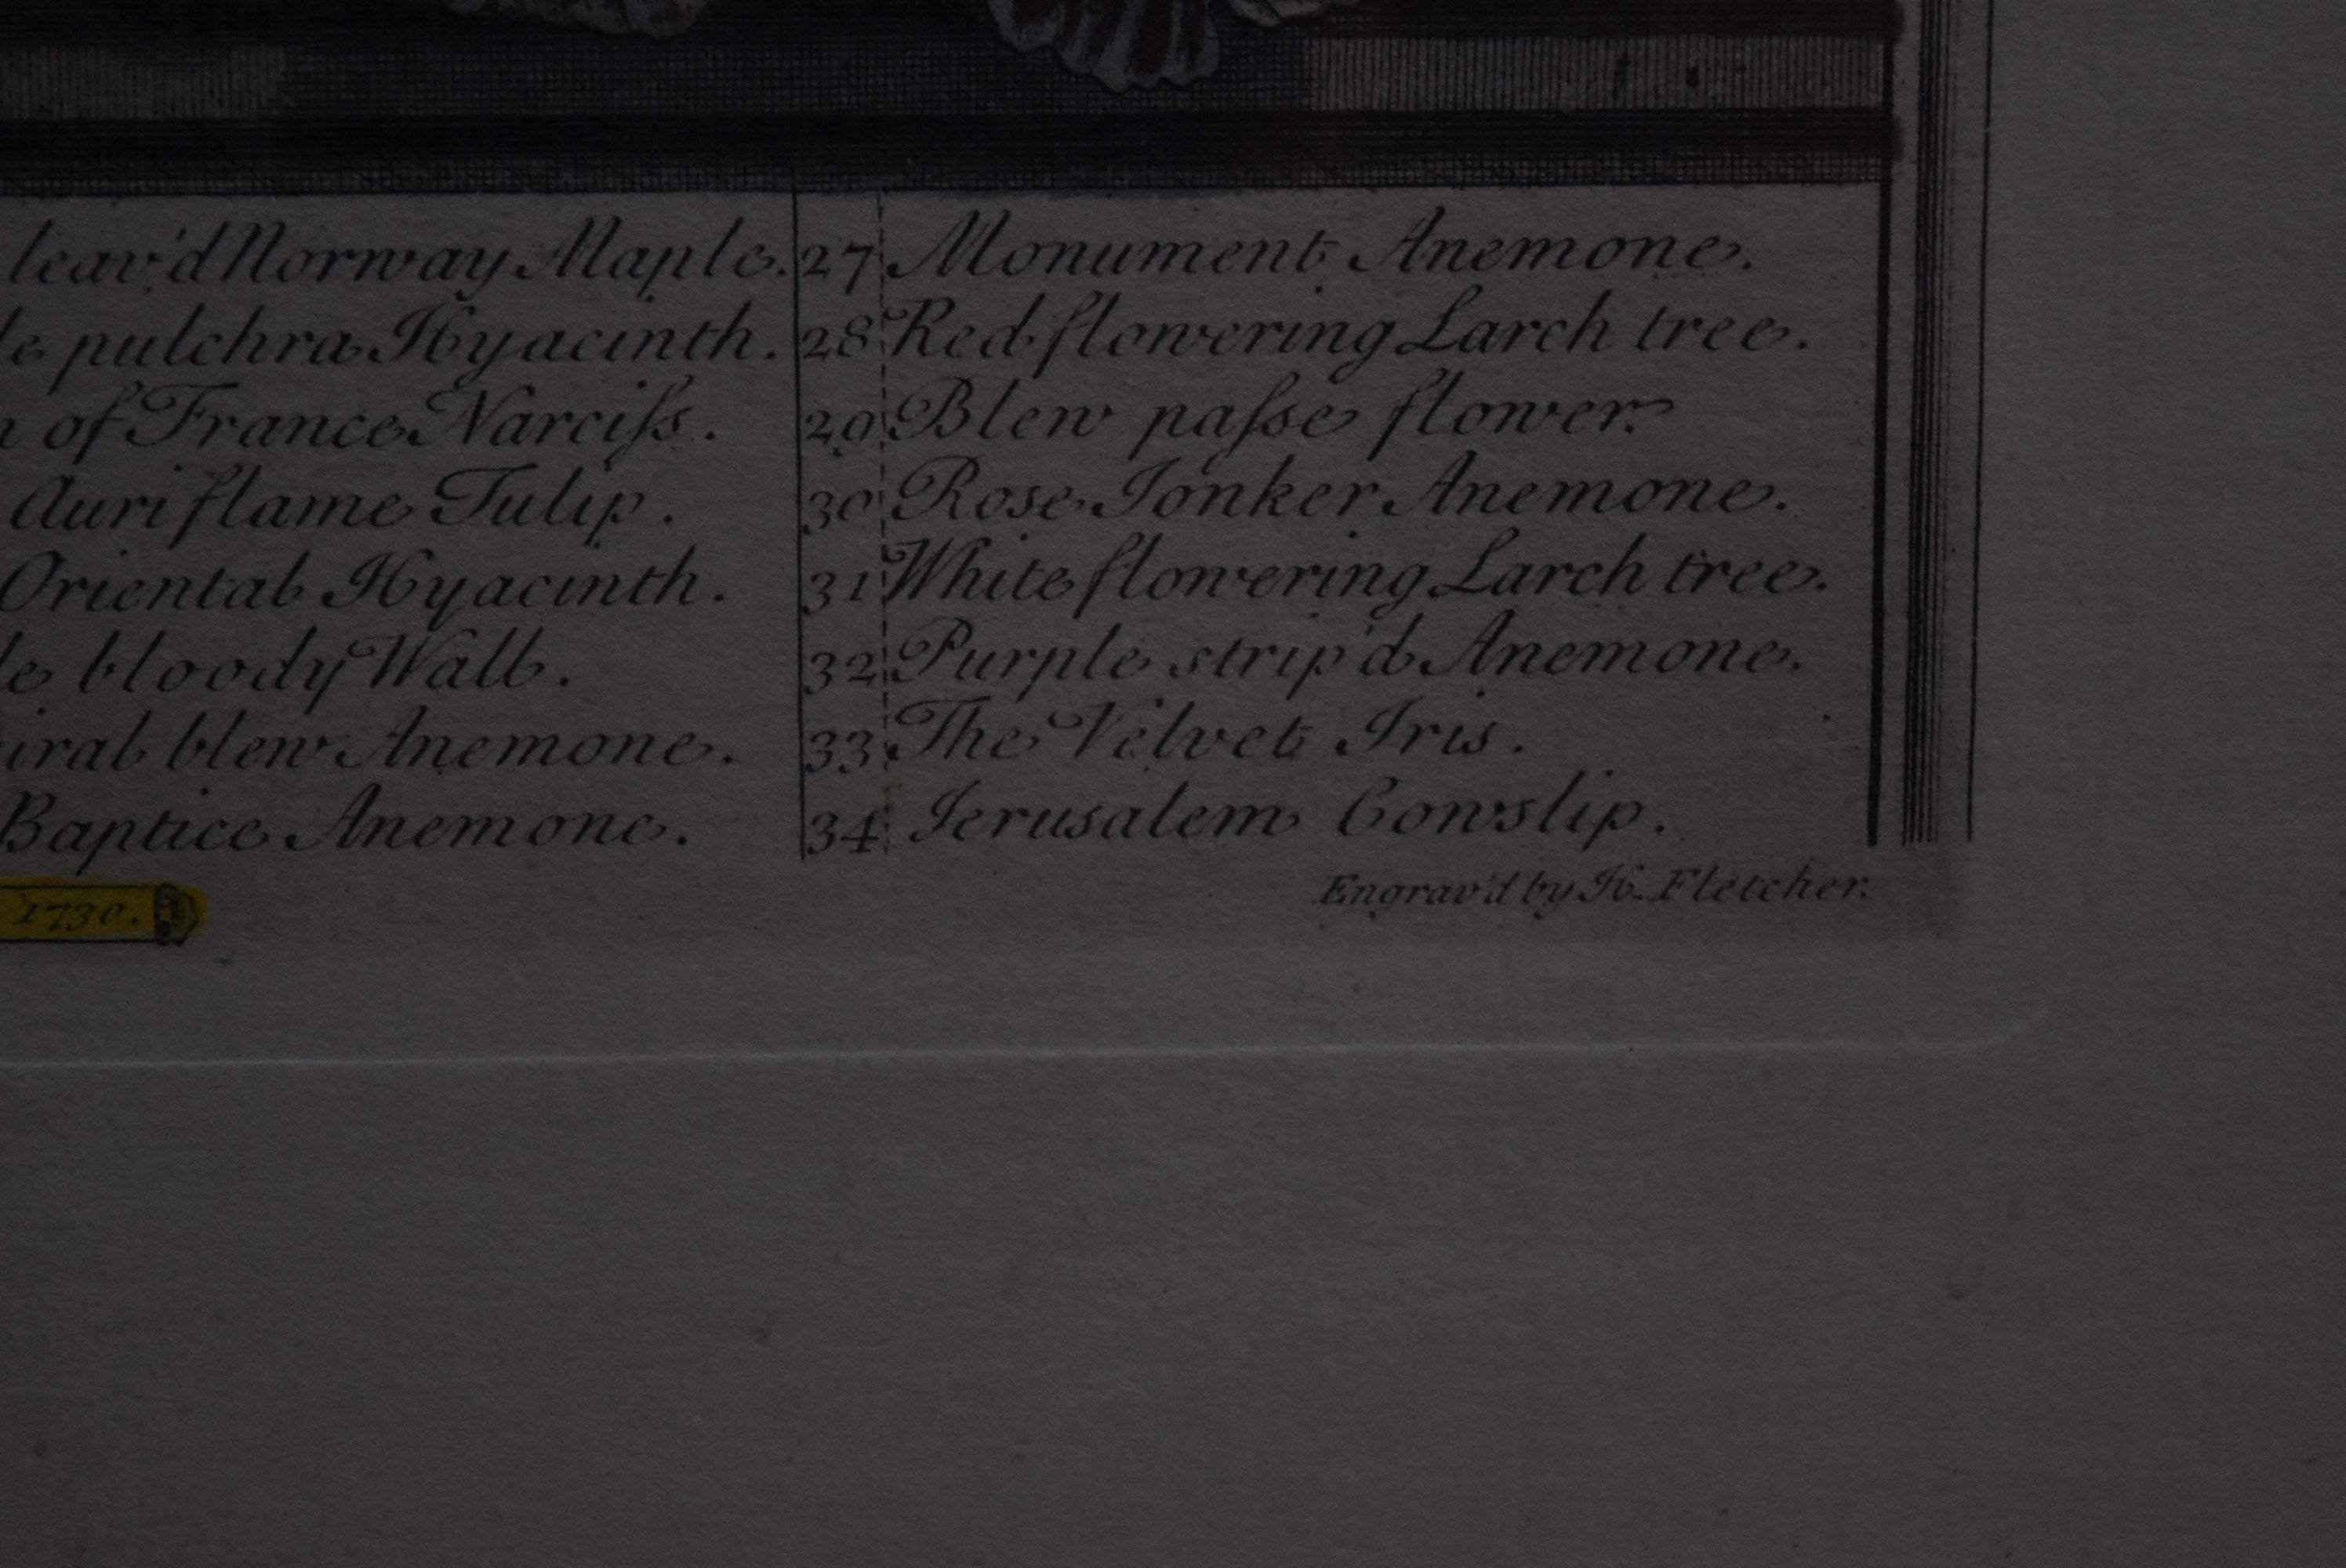 leav'd Norway Maple.
pulchra Hyacinth.
of France Narciſs.
Auriflame Tulip.
Oriental Hyacinth.
bloody Wall.
blew Anemone.
Baptice Anemone.
27 Monument Anemone.
28 Red flowering Larch tree.
29 Blew paſse flower.
30 Rose Ionker Anemone.
31 White flowering Larch tree.
32 Purple strip'd Anemone.
33 The Velvet Iris.
34 Ierusalem Cowslip.
1730.
Engrav'd by H. Fletcher.